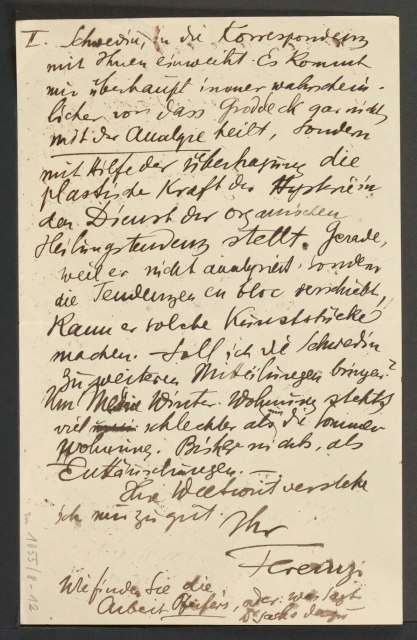 II. Schwedin, in die Korrespondenz
mit Ihnen einweiht. Es kommt
mir überhaupt immer wahrschein-
licher vor, dass Groddeck gar nicht
mit der Analyse heilt, sondern
mit Hilfe der Übertragung die
plastische Kraft der Hysterie in
den Dienst der organischen
Heilungstendenz stellt. Gerade,
weil er nicht analysiert, sondern
die Tendenzen en bloc verschiebt,
kann er solche Kunststücke
machen. – Soll ich die Schwedin
zu weiteren Mitteilungen bringen?
Um Meine Winter-Wohnung steht's
viel schlechter als um die Sommer-
Wohnung. Bisher nichts, als
Enttäuschungen. –
Ihre verstehe
ich nur zu gut. Ihr
Ferenczi
Wie finden Sie die
Arbeit Pfeifers, oder was sagt
Dr. Sachs dazu
1055/8-12